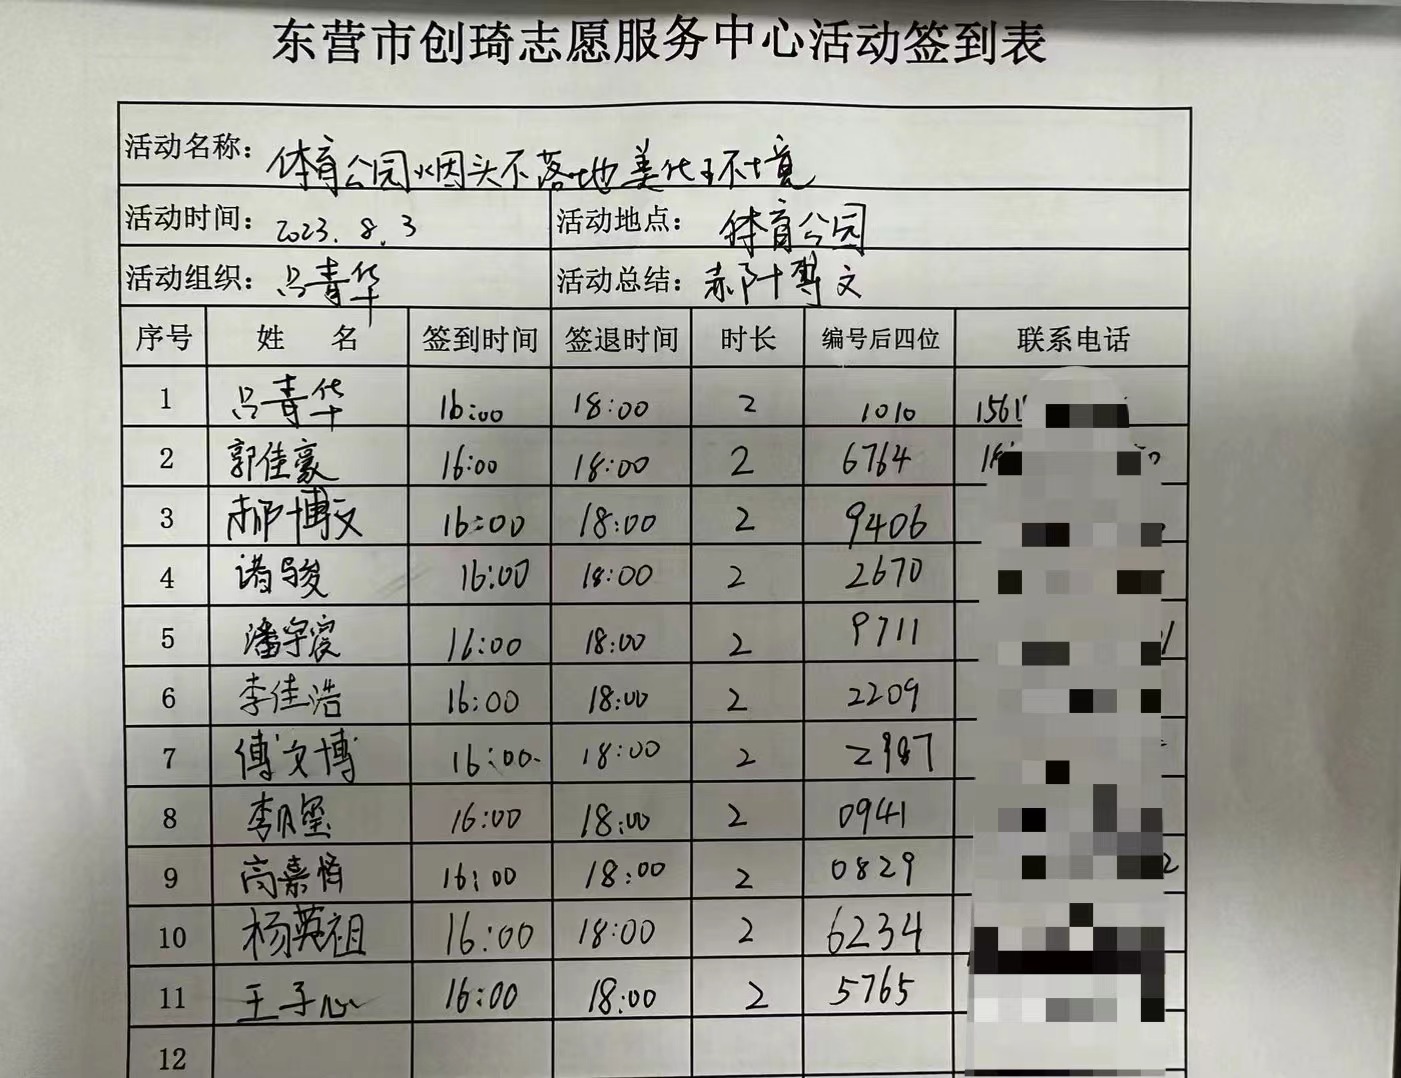 东营市创琦志愿服务中心活动签到表
活动名称: 体育公园烟头不落地美化环境
活动时间: 2023.8.3 活动地点: 体育公园
活动组织: 吕青华 活动总结: 郝博文
序号 姓 名 签到时间 签退时间 时长 编号后四位 联系电话
1 吕青华 16:00 18:00 2 1010 1561
2 郭佳豪 16:00 18:00 2 6764
3 郝博文 16:00 18:00 2 9406
4 16:00 18:00 2 2670
5 潘宇宸 16:00 18:00 2 9711
6 李佳浩 16:00 18:00 2 2209
7 傅文博 16:00 18:00 2 2987
8 16:00 18:00 2 0941
9 高嘉 16:00 18:00 2 0829
10 杨英祖 16:00 18:00 2 6234
11 王子心 16:00 18:00 2 5765
12